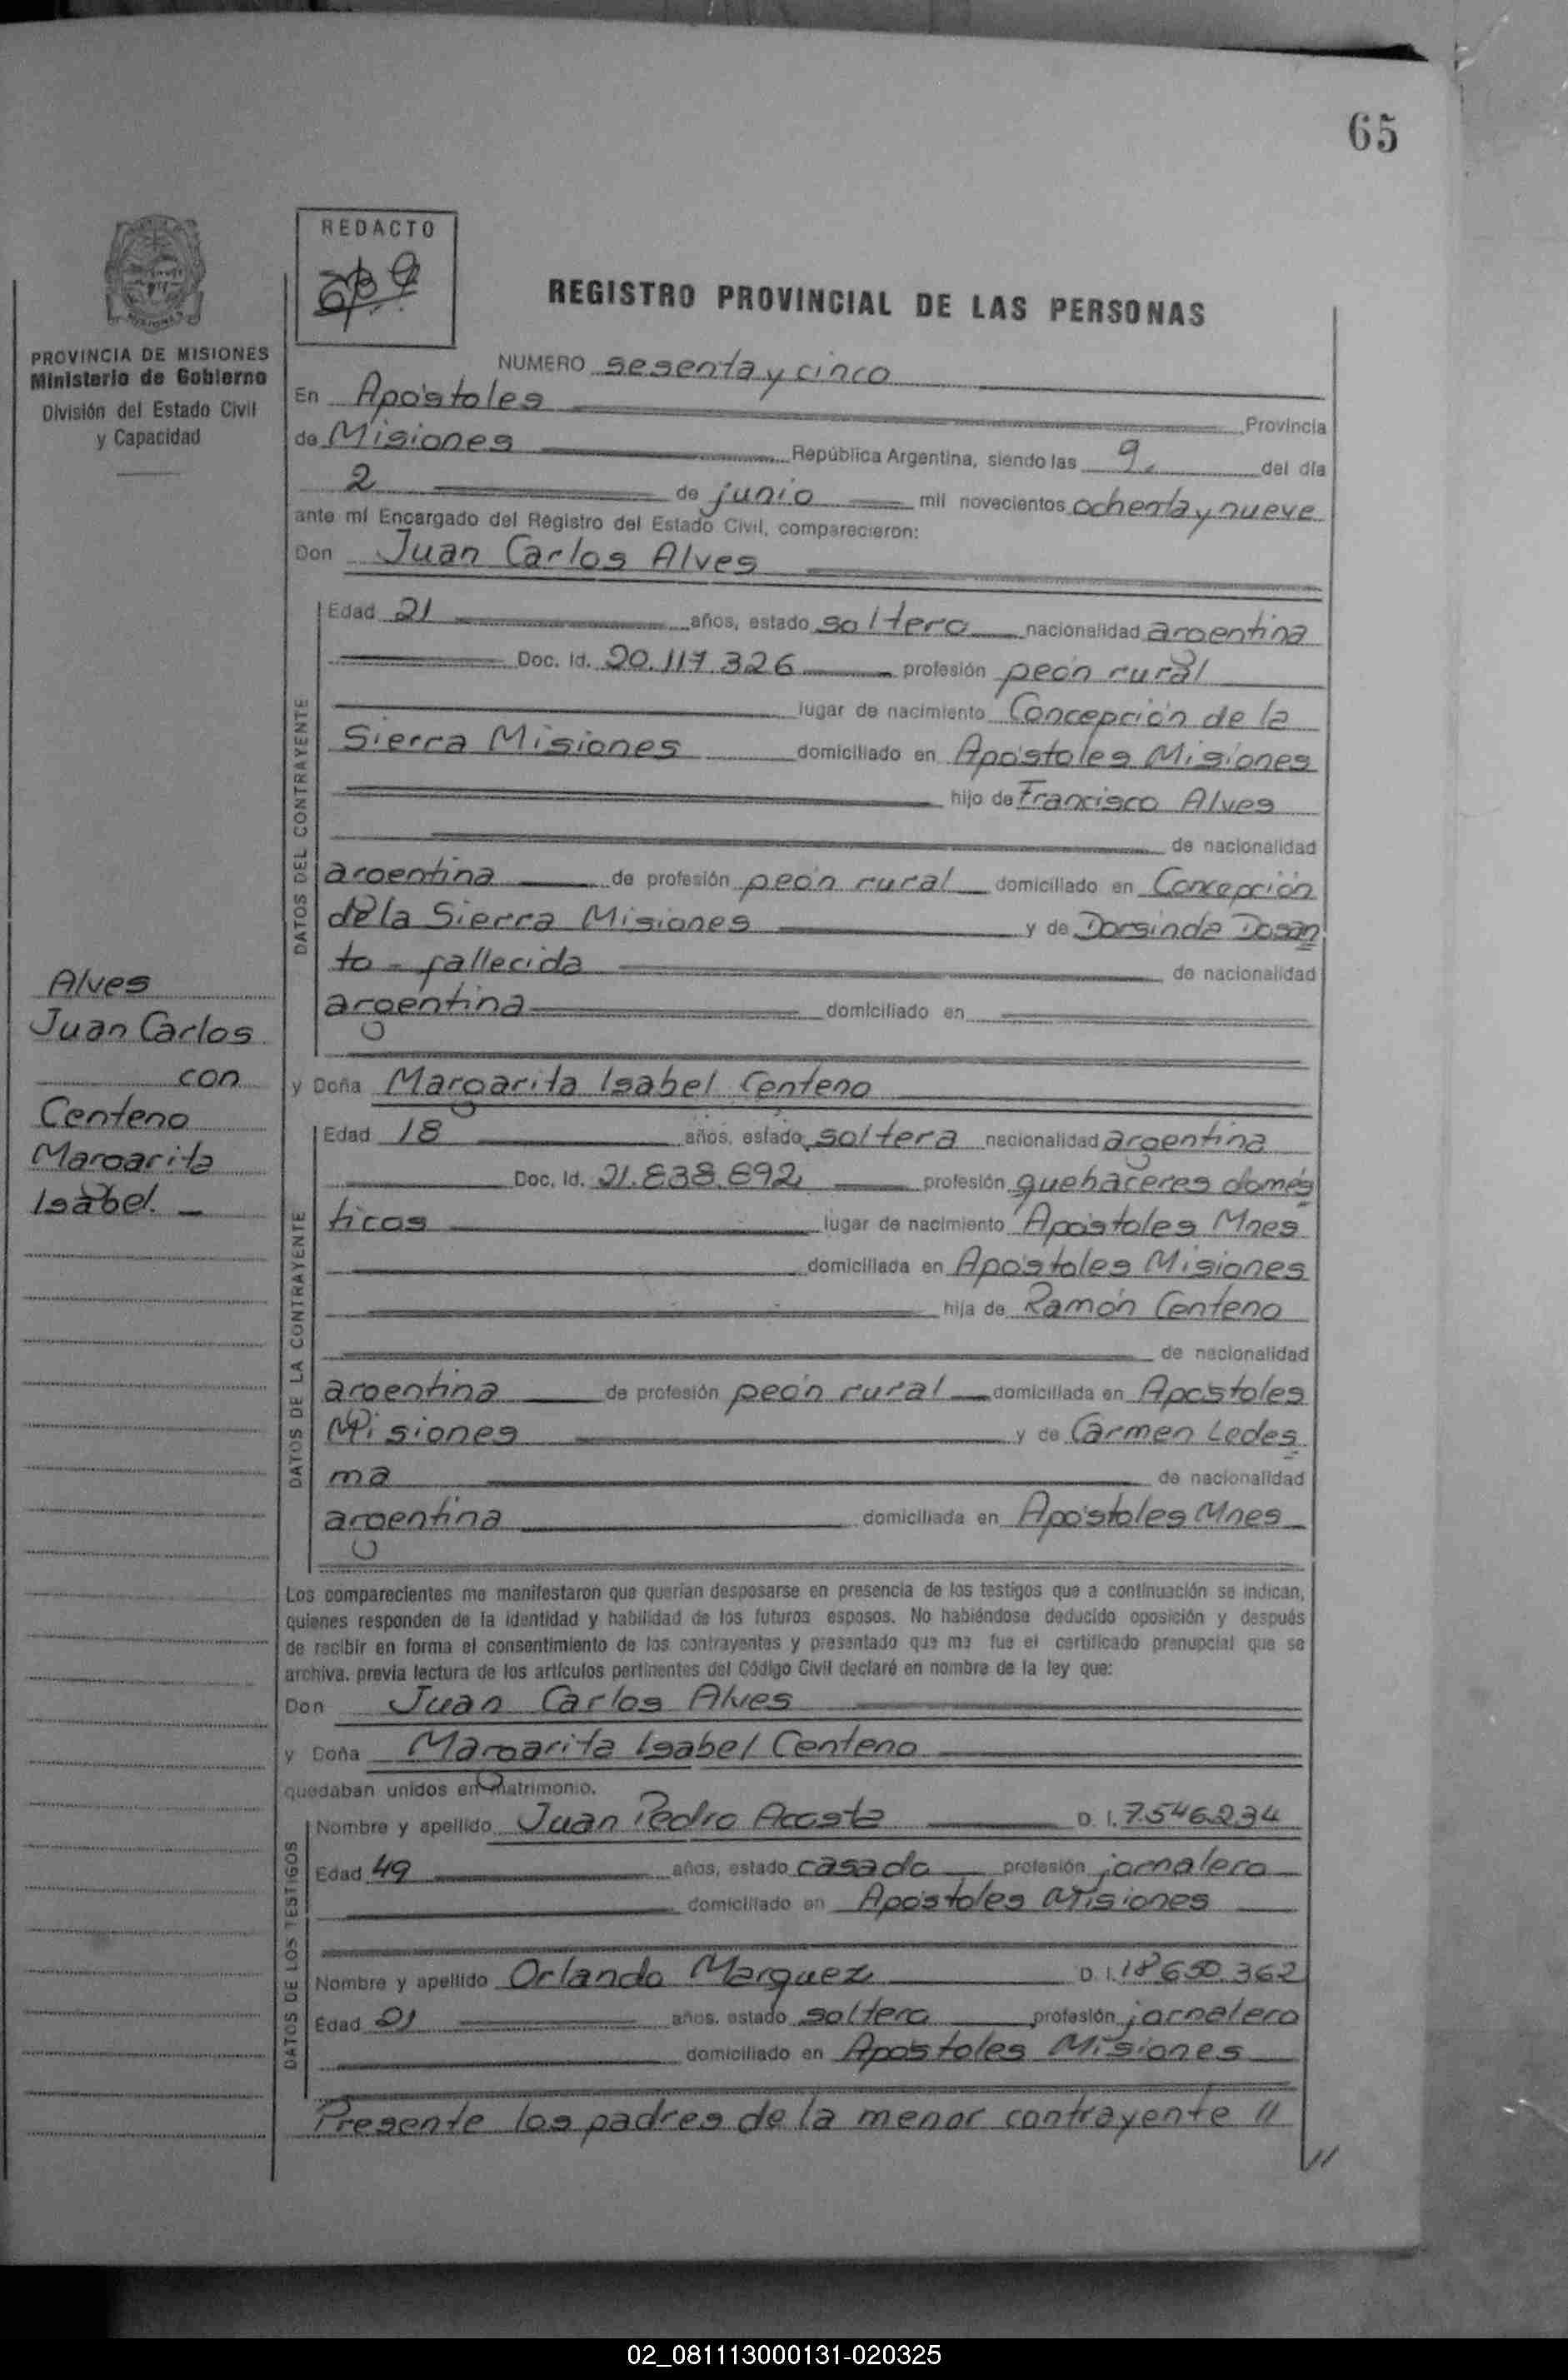 65
REDACTO
REGISTRO PROVINCIAL DE LAS PERSONAS
PROVINCIA DE MISIONES
Ministerio de Gobierno
División del Estado Civil
y Capacidad
NUMERO sesenta y cinco
En Apóstoles Provincia
de Misiones República Argentina, siendo las 9. del día
2 de junio mil novecientos ochenta y nueve
ante mí Encargado del Registro del Estado Civil, comparecieron:
Don Juan Carlos Alves
Edad 21 años, estado soltero nacionalidad argentina
Doc. Id. 20.117.326 profesión peón rural
lugar de nacimiento Concepción de la
Sierra Misiones domiciliado en Apóstoles Misiones
hijo de Francisco Alves
de nacionalidad
argentina de profesión peón rural domiciliado en Concepción
de la Sierra Misiones y de Dorsinda Dosan
to - fallecida de nacionalidad
argentina domiciliado en
DATOS DEL CONTRAYENTE
Alves
Juan Carlos
con
Centeno
Margarita
Isabel. -
y Doña Margarita Isabel Centeno
Edad 18 años, estado soltera nacionalidad argentina
Doc. Id. 21.838.892 profesión quehaceres domés
ticos lugar de nacimiento Apóstoles Mnes
domiciliada en Apóstoles Misiones
hija de Ramón Centeno
de nacionalidad
argentina de profesión peón rural domiciliada en Apóstoles
Misiones y de Carmen Ledes
ma de nacionalidad
argentina domiciliada en Apóstoles Mnes
DATOS DE LA CONTRAYENTE
Los comparecientes me manifestaron que querían desposarse en presencia de los testigos que a continuación se indican,
quienes responden de la identidad y habilidad de los futuros esposos. No habiéndose deducido oposición y después
de recibir en forma el consentimiento de los contrayentes y presentado que me fue el certificado prenupcial que se
archiva. previa lectura de los artículos pertinentes del Código Civil declaré en nombre de la ley que:
Don Juan Carlos Alves
y Doña Margarita Isabel Centeno
quedaban unidos en matrimonio.
Nombre y apellido Juan Pedro Acosta D. I. 7.546.234
Edad 49 años, estado casado profesión jornalero
domiciliado en Apóstoles Misiones
Nombre y apellido Orlando Marquez D. I. 18650.362
Edad 21 años, estado soltero profesión jornalero
domiciliado en Apóstoles Misiones
DATOS DE LOS TESTIGOS
Presente los padres de la menor contrayente //
//
02_081113000131-020325